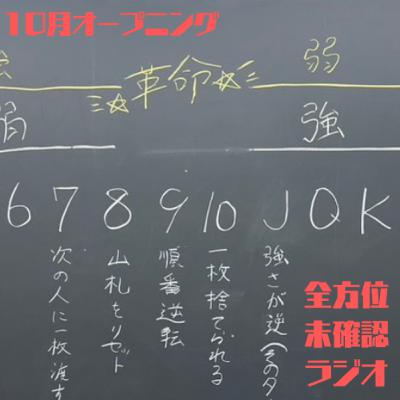 10月オープニング
革命
弱
弱
強
6 7 8 9 10 J Q K
次の人に一枚渡す
山札をリセット
順番逆転
一枚捨てられる
強さが逆(そのタ
全方位
未確認
ラジオ